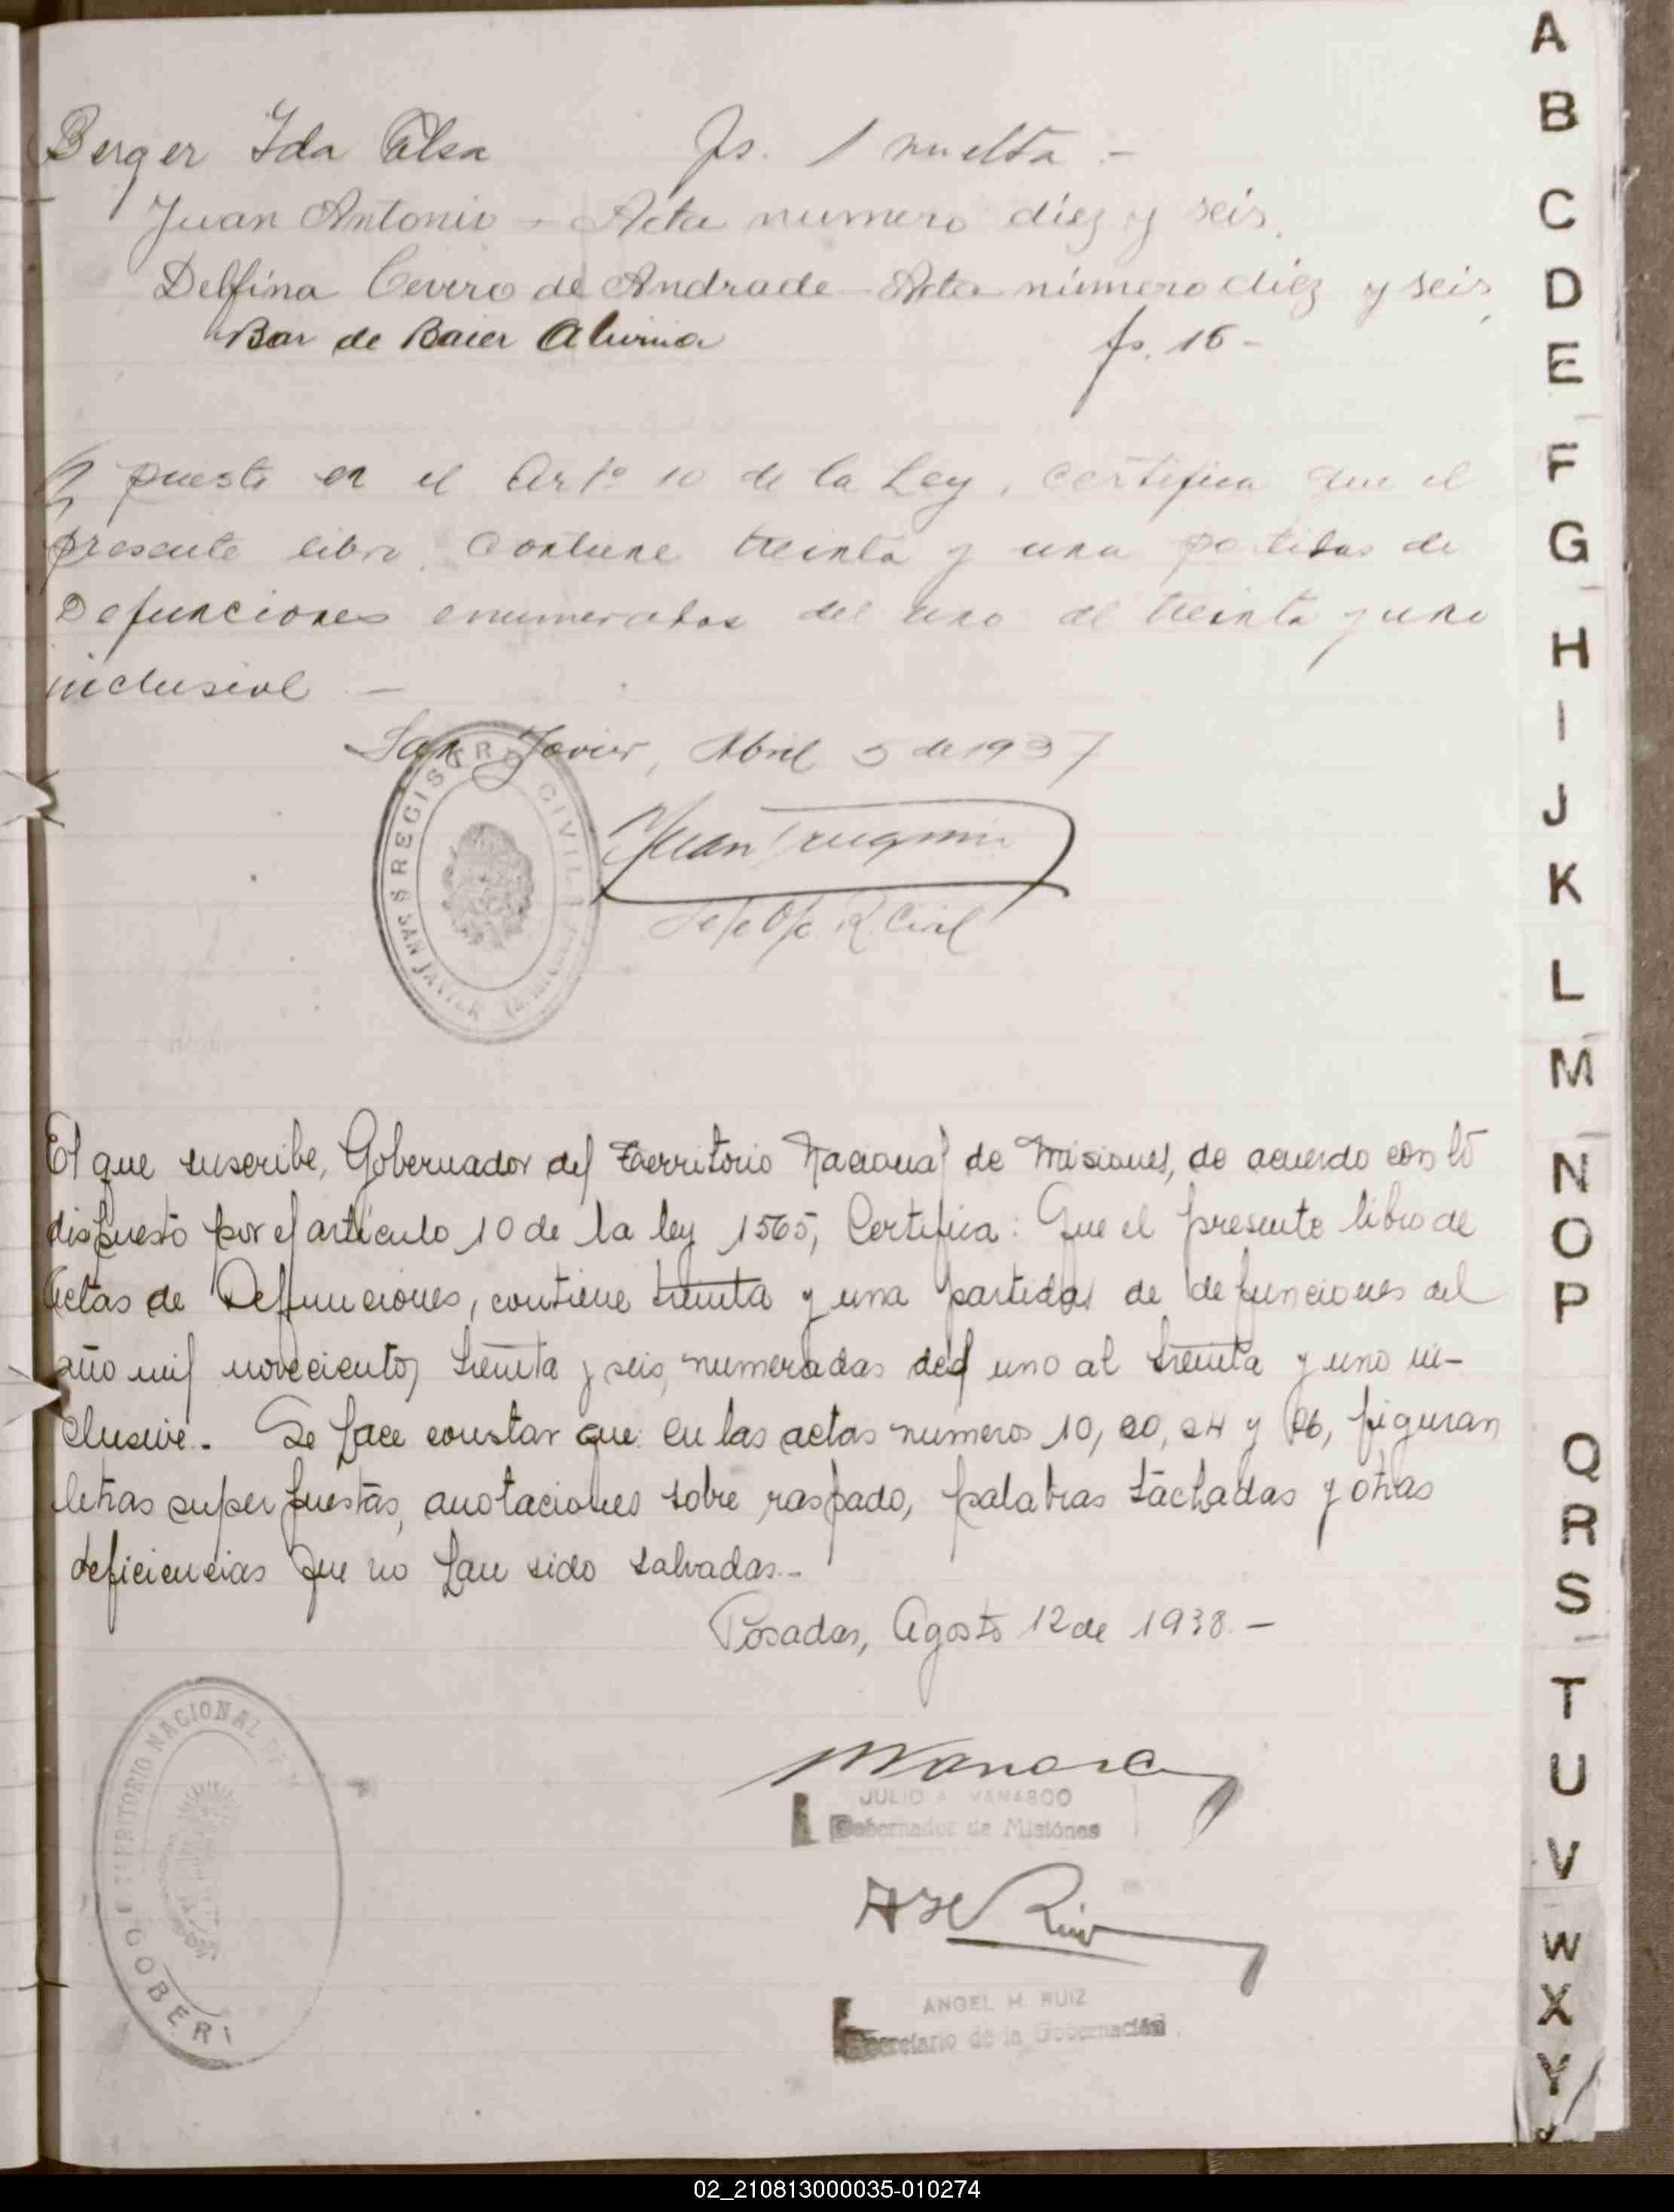 Berger Ida Elsa fs. 1 vuelta.-
Juan Antonio - Acta numero diez y seis.
Delfina Cevero de Andrade Acta número diez y seis,
Bar de Baier Alwina fs. 16-
puesto en el Artº 10 de la Ley, certifica que el
presente libro. Contiene treinta y una partidas de
Defunciones enumeradas del uno al treinta y uno
inclusive -
San Javier, Abril 5 de 1937
REGISTRO CIVIL
SAN JAVIER
Juan
Jefe Ofc R. Civil
El que suscribe, Gobernador del Territorio Nacional de Misiones, de acuerdo con lo
dispuesto por el artículo 10 de la ley 1565, Certifica: Que el presente libro de
Actas de Deffunciones, contiene treinta y una partidas de defunciones del
año mil novecientos treinta y seis, numeradas del uno al treinta y uno in-
clusive. Se hace constar que en las actas numeros 10, 20, 24 y 26, figuran
letras superpuestas, anotaciones sobre raspado, palabras tachadas y otras
deficiencias que no han sido salvadas.-
Posadas, Agosto 12 de 1938.-
TERRITORIO NACIONAL DE
GOBER
JULIO A. VANASCO
Gobernador de Misiónes
ANGEL H. RUIZ
Secretario de la Gobernación
A
B
C
D
E
F
G
H
I
J
K
L
M
N
O
P
Q
R
S
T
U
V
W
X
Y
02_210813000035-010274